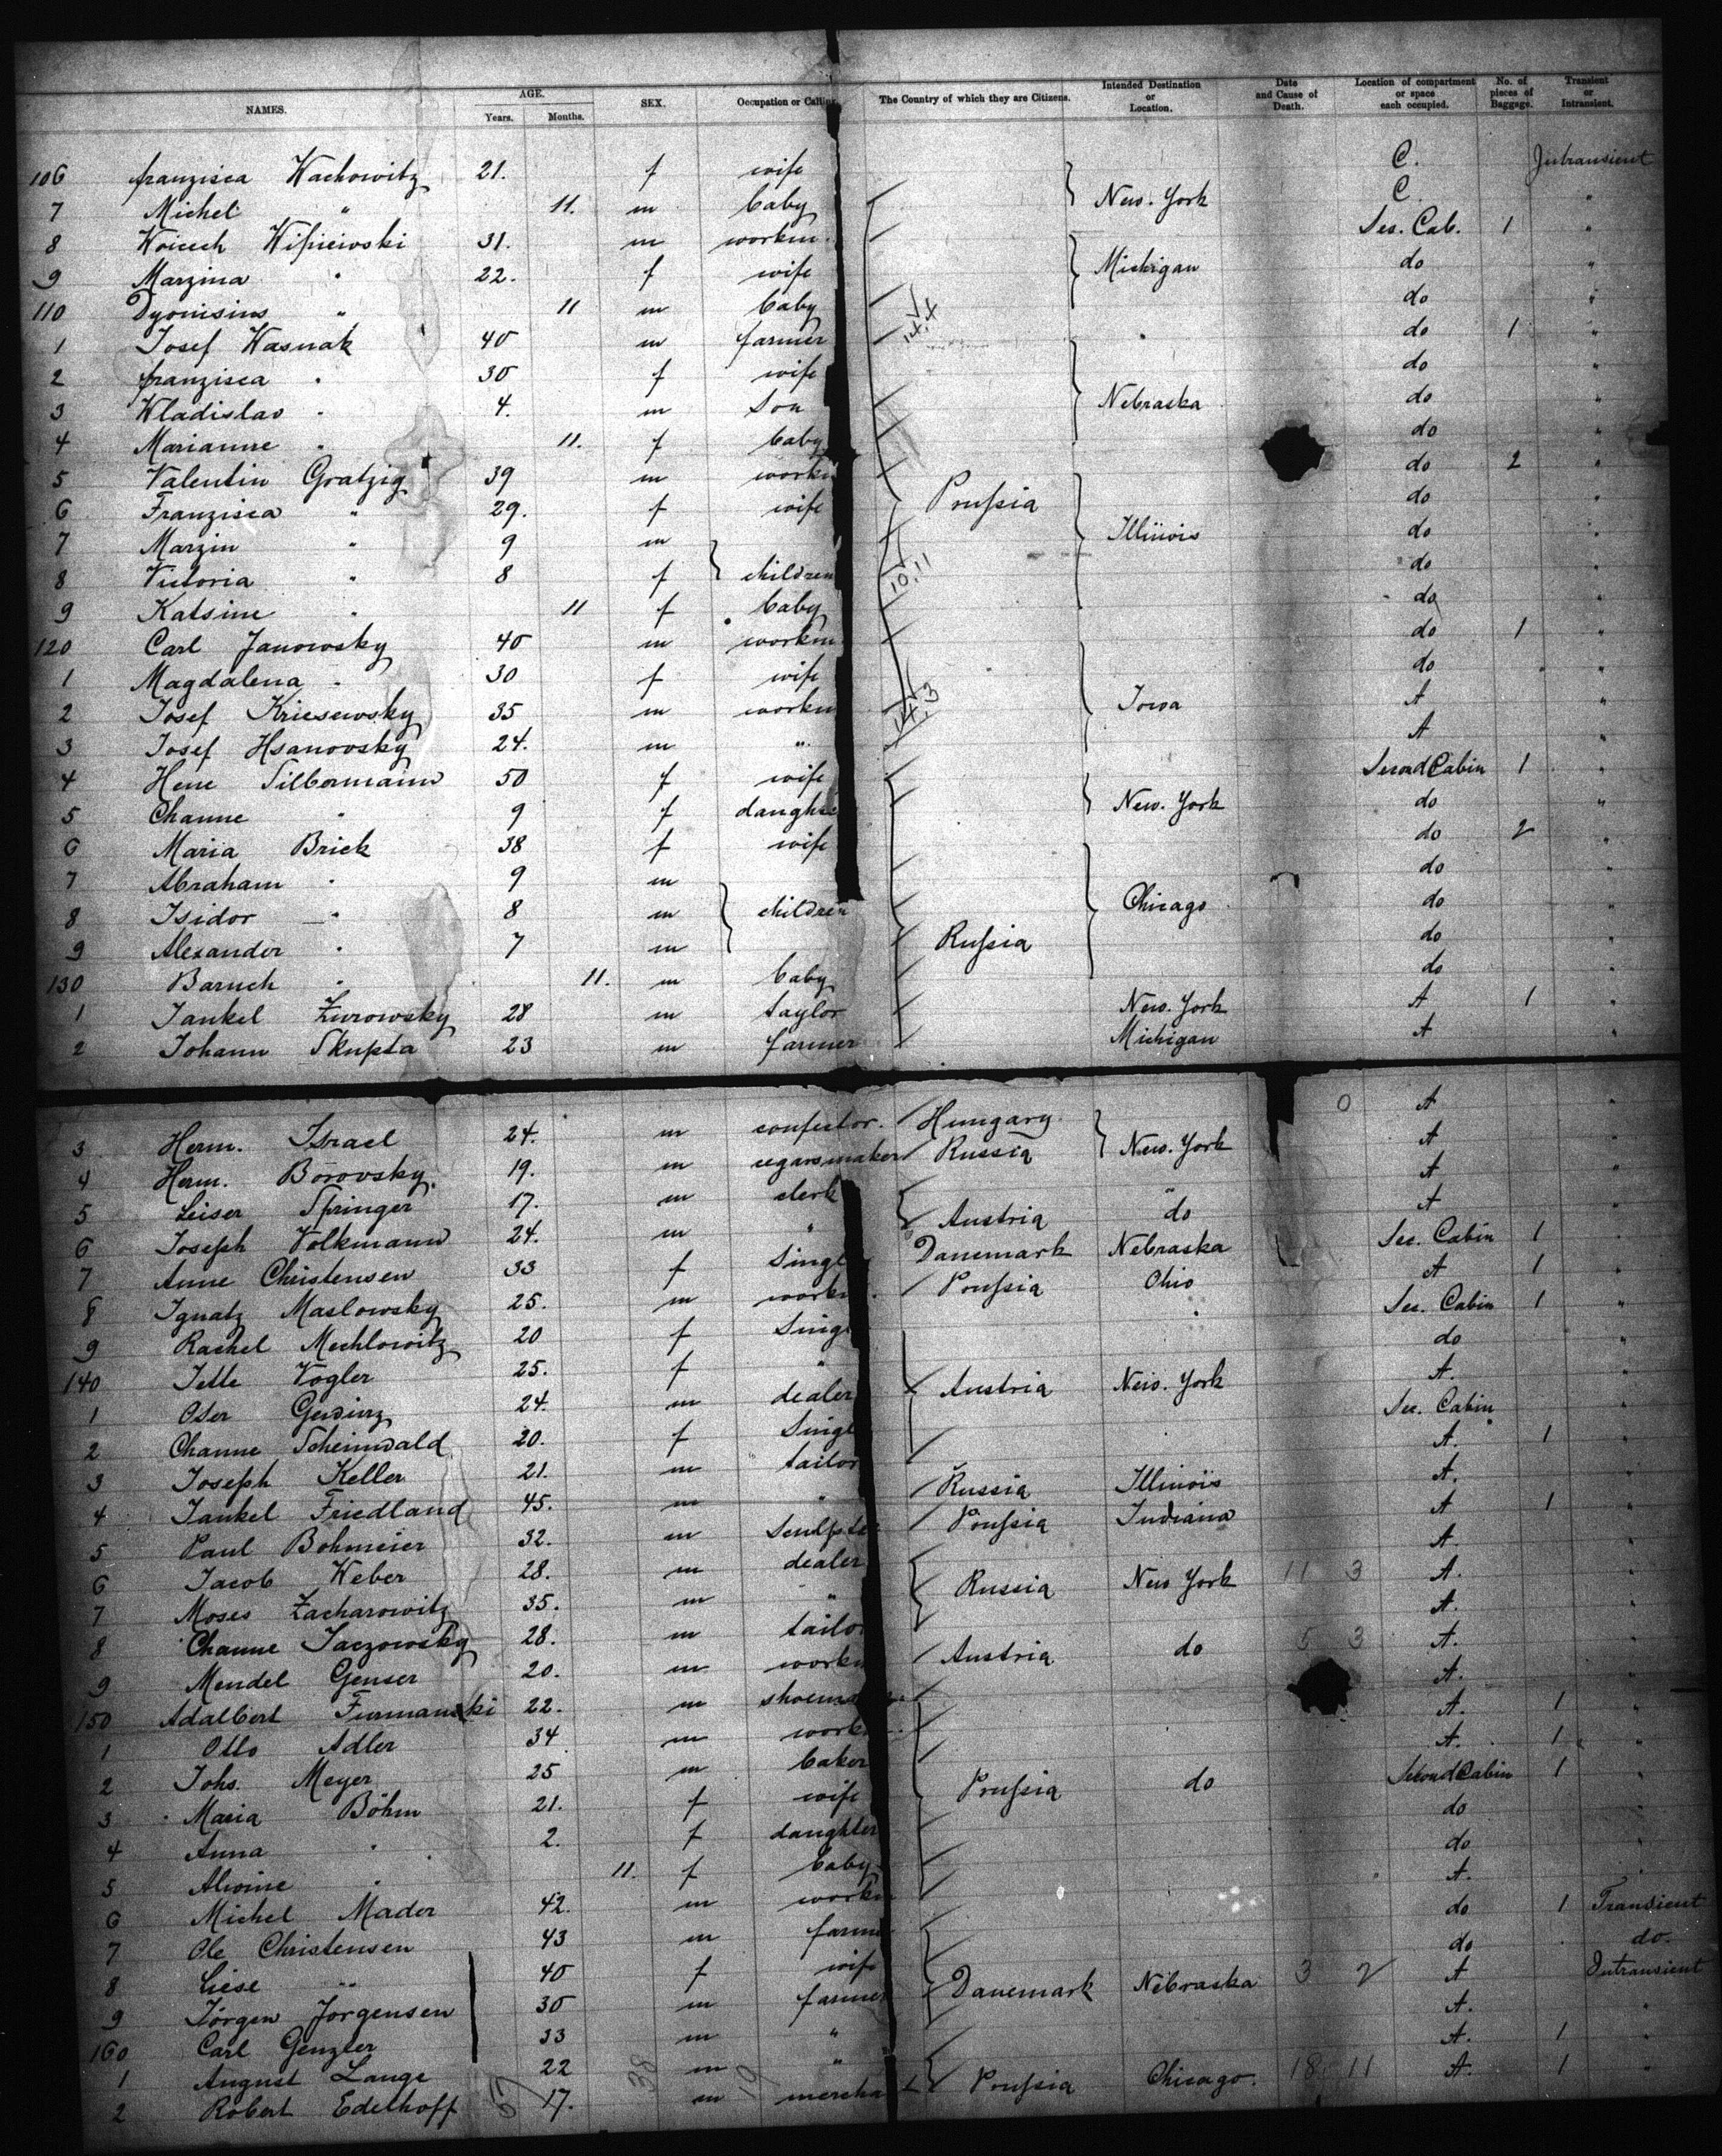 NAMES. AGE. Years. Months. SEX. Occupation or Calling The Country of which they are Citizens. Intended Destination or Location. Date and Cause of Death. Location of compartment or space each occupied. No. of pieces of Baggage. Transient or Intransient.
106 franzisca Wachowitz 21. f wife C. Intransient
7 Michel " 11. m baby New. York C. "
8 Woicech 31. m workm. Sec. Cab. 1 "
9 Marzina " 22. f wife Michigan do "
110 Dyonisius " 11 m baby do "
1 Josef Wasnak 40 m farmer " do 1 "
2 franzisca " 30 f wife do "
3 Wladislav " 4. m Son Nebraska do "
4 Marianne " 11. f baby do "
5 Valentin Gratzig 39 m workm do 2 "
6 Franzisca " 29. f wife Prußia do "
7 Marzin " 9 m Illinois do "
8 Victoria " 8 f children do "
9 Katsine " 11 f baby do "
120 Carl Janowsky 40 m workm do 1 "
1 Magdalena " 30 f wife do "
2 Josef Kriesewsky 35 m workm Iowa A "
3 Josef Hsanovsky 24. m " A "
4 Hene Silbermann 50 f wife Second Cabin 1 "
5 Channe " 9 f daughte New. York do "
6 Maria Brick 38 f wife do 2 "
7 Abraham " 9 m do
8 Isidor " 8 m children Chicago do "
9 Alexander " 7 m Rußia do "
130 Baruch " 11. m baby do "
1 Jankel Zurowsky 28 m taylor New. York A 1 "
2 Johann Skupta 23 m farmer Michigan A "
3 Herm. Israel 24. m confector. Hungary. A "
4 Herm. Borovsky. 19. m cegarsmaker Russia New. York A
5 Leiser Springer 17. m clerk A "
6 Joseph Volkmann 24. m " Austria do A "
7 Anne Christensen 33 f Singl Danemark Nebraska Sec. Cabin 1 "
8 Ignatz Maslowsky 25. m workm. Prußia Ohio A 1 "
9 Rachel Mechlowitz 20 f Singl " Sec. Cabin 1 "
140 Jette Vogler 25. f " do "
1 Oser Gewirz 24. m dealer Austria New. York A. "
2 Channe Scheinwald 20. f Singl Sec. Cabin "
3 Joseph Keller 21. m tailor A. 1 "
4 Jankel Friedland 45. m " Russia Illinois A. "
5 Paul Bohmeier 32. m Sculpte Prußia Indiana A 1 "
6 Jacob Weber 28. m dealer A. "
7 Moses Zacharowitz 35. m " Russia New York 11 3 A. "
8 Channe Jaczowsky 28. m tailo A. "
9 Mendel Genser 20. m workm Austria do 5 3 A. "
150 Adalbert Furmanski 22. m shoema A. "
1 Otto Adler 34 m workm A. 1 "
2 Johs. Meyer 25 m baker A. 1 "
3 Maria Böhm 21. f wife Prußia do Second Cabin 1 "
4 Anna " 2. f daughter do "
5 Alwine " 11. f baby do "
6 Michel Mader 42. m workm A. "
7 Ole Christensen 43 m farme do 1 Transient
8 Liese " 40 f wife do do.
9 Jørgen Jorgensen 30 m farmer Danemark Nebraska 3 2 A Intransient
160 Carl Genzler 33 m " A. "
1 August Lange 22 m " A. 1 "
2 Robert Edelhoff 17. m mercha Prußia Chicago. 18 11 A. 1 "